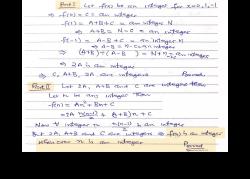 Part I Let f(x) be an integer for x=0,1,-1
⇒ f(0) = C = an integer
f(1) = A+B+C = an integer N
⇒ A+B = N-C = an integer
f(-1) = A-B+C = an integer M
⇒ A-B = M-C = an integer
⇒ (A+B)+(A-B)
⇒ 2A is an integer
⇒ C, A+B, 2A are integers Proved.
Part II Let 2A, A+B and C are integers then
Let n be any integer then
f(n) = An²+Bn+C
= 2A n(n-1)/2 + (A+B)n + C
Now n integer ⇒ n(n-1)/2 is an integer
But 2A, A+B and C are integers ⇒ f(n) is an integer
whenever n is an integer
Proved